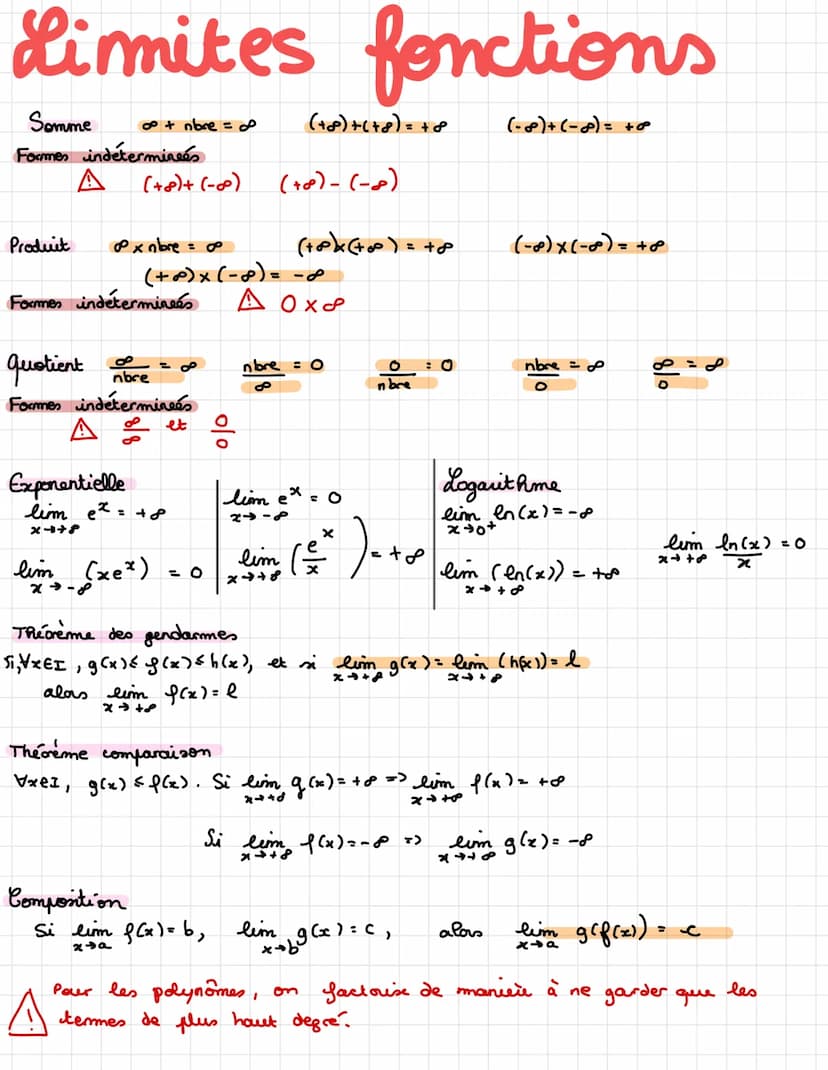 Limites fonctions
Somme ∞ + nbre = ∞ (+∞)+(+∞) = +∞ (-∞)+(-∞) = +∞
Formes indéterminées
⚠ (+∞)+(-∞) (+∞)-(-∞)
Produit ∞ x nbre = ∞ (+∞)x(+∞) = +∞ (-∞)x(-∞) = +∞
(+∞)x(-∞) = -∞
Formes indéterminées ⚠ 0 x ∞
Quotient ∞/nbre = ∞ nbre/∞ = 0 0/nbre = 0 nbre/0 = ∞ ∞/0 = ∞
Formes indéterminées
⚠ ∞/∞ et 0/0
Exponentielle
lim x→+∞ e^x = +∞
lim x→-∞ (xe^x) = 0
lim x→-∞ e^x = 0
lim x→+∞ (e^x/x) = +∞
Logarithme
lim x→0+ ln(x) = -∞
lim x→+∞ (ln(x)) = +∞
lim x→+∞ ln(x)/x = 0
Théorème des gendarmes
Si, ∀x∈I, g(x) ≤ f(x) ≤ h(x), et si lim x→+∞ g(x) = lim x→+∞ (h(x)) = l
alors lim x→+∞ f(x) = l
Théorème comparaison
∀x∈I, g(x) ≤ f(x). Si lim x→+∞ g(x) = +∞ => lim x→+∞ f(x) = +∞
Si lim x→+∞ f(x) = -∞ => lim x→+∞ g(x) = -∞
Composition
Si lim x→a f(x) = b, lim x→b g(x) = c, alors lim x→a g(f(x)) = c
⚠ Pour les polynômes, on factorise de manière à ne garder que les
termes de plus haut degré.